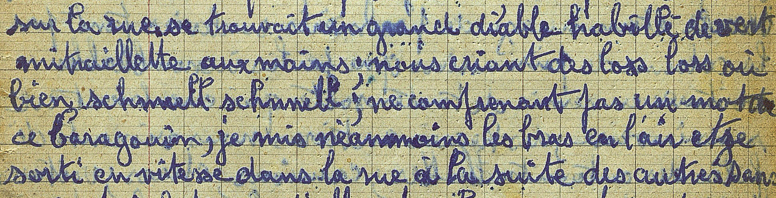 sur la rue. se trouvait un grand diable habillé de vert
mitraillette aux mains ; nous criant des loss loss ou
bien, schmell schnnell ; ne comprenant pas un mot à
ce baragouin, je mis néanmoins les bras en l'air et je
sorti en vitesse dans la rue à la suite des autres dans